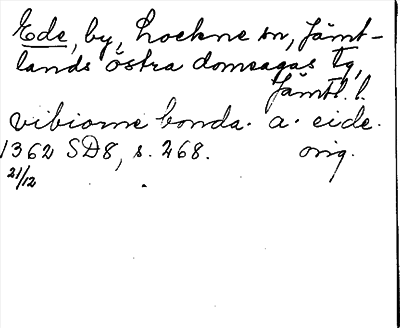 Ede, by, Lockne sn, Jämt-
lands östra domsagas tg,
Jämtl. l.
vibiorne bonda. a. eide.
1362 SD8, s. 268. orig.
21/12